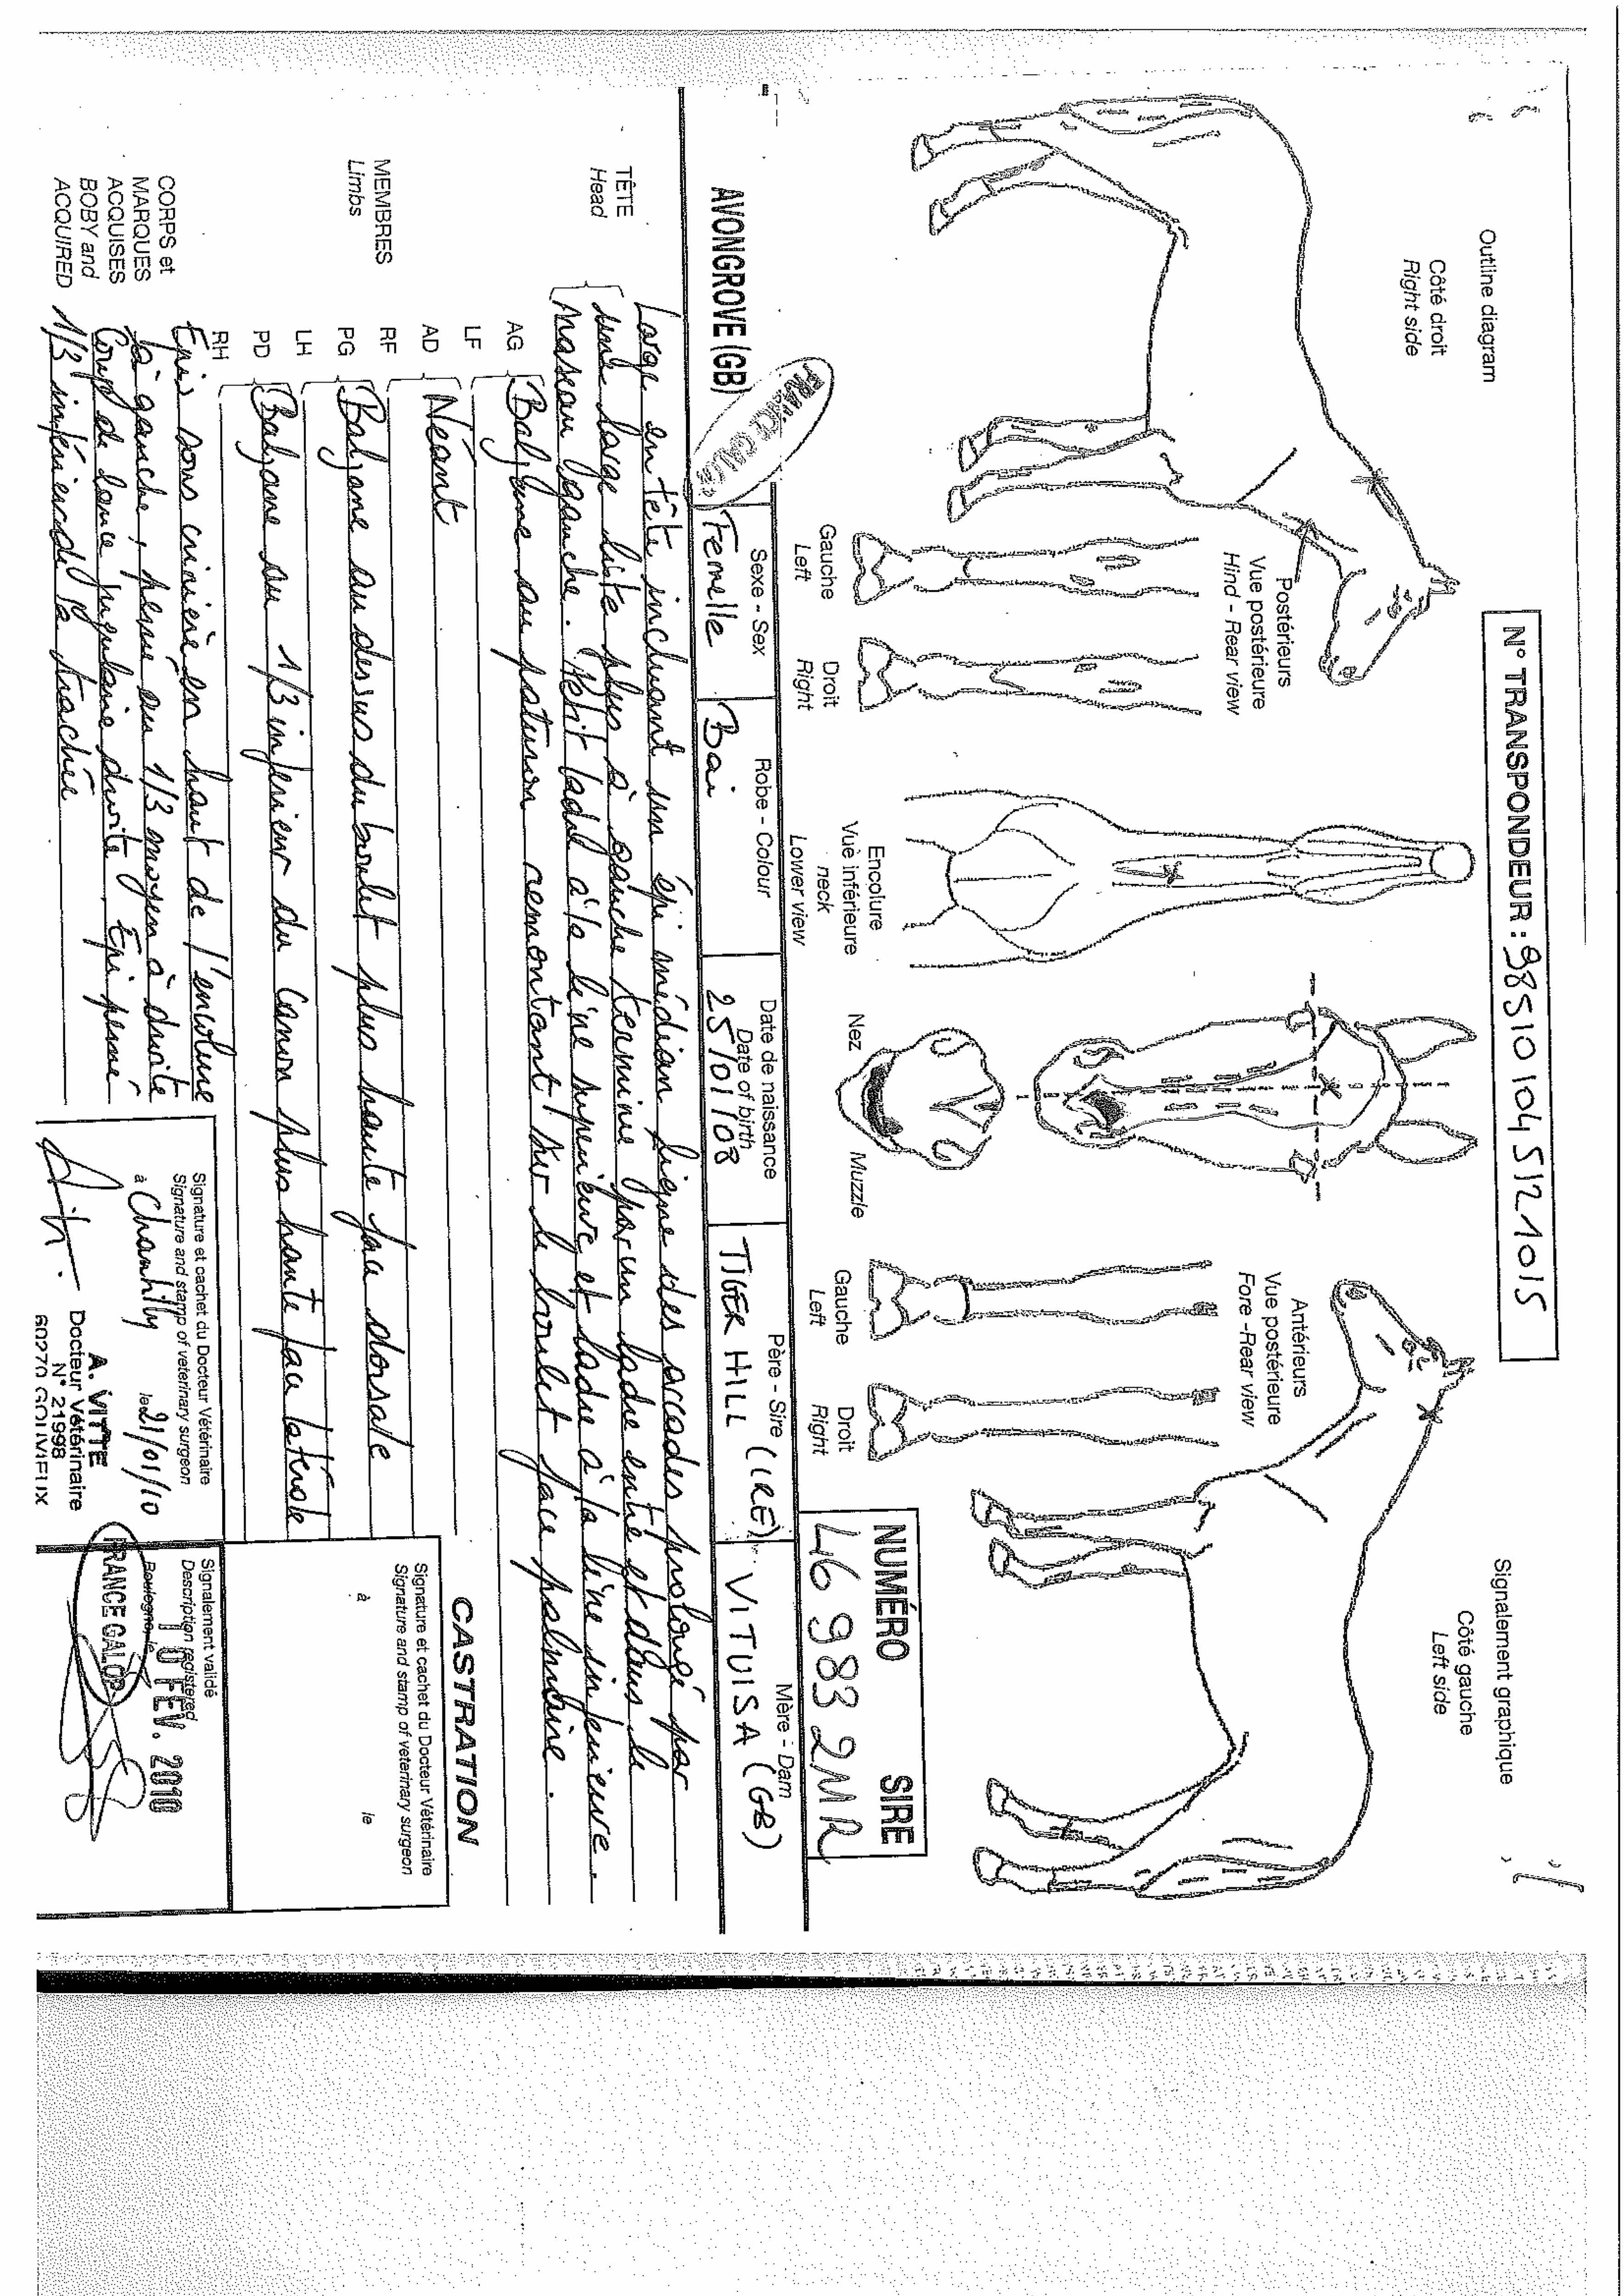 Outline diagram
Côté droit
Right side
N° TRANSPONDEUR : 985101045121015
Signalement graphique
Côté gauche
Left side
Postérieurs
Vue postérieure
Hind - Rear view
Gauche
Left
Droit
Right
Encolure
Vue inférieure
neck
Lower view
Nez
Muzzle
Antérieurs
Vue postérieure
Fore -Rear view
Gauche
Left
Droit
Right
NUMÉRO SIRE
46 983 2MR
AVONGROVE (GB)
FRANCE GALOP
Sexe - Sex
Femelle
Robe - Colour
Bai
Date de naissance
Date of birth
25/01/08
Père - Sire
TIGER HILL (IRE)
Mère - Dam
VITUISA (GB)
TÊTE
Head
Large en tête incluant un épi médian ligne des arcades prolongé par
une large liste plus à gauche terminée par un ladre entre et dans le
naseau gauche. Petit ladre à la lèvre supérieure et ladre à la lèvre inférieure.
MEMBRES
Limbs
AG
LF
Balzane au paturon remontant sur le boulet face palmaire.
AD
RF
Néant
PG
LH
Balzane au dessus du boulet plus haute face dorsale
PD
RH
Balzane au 1/3 inférieur du canon plus haute face latérale
CORPS et
MARQUES
ACQUISES
BOBY and
ACQUIRED
Epis sous crinière en haut de l'encolure
à gauche, penné au 1/3 moyen à droite
Coup de lance jugulaire droite. Epi penné
1/3 inférieur de la trachée
CASTRATION
Signature et cachet du Docteur Vétérinaire
Signature and stamp of veterinary surgeon
à
le
Signature et cachet du Docteur Vétérinaire
Signature and stamp of veterinary surgeon
à Chantilly le 21/01/10
A. VITTE
Docteur Vétérinaire
N° 21998
60270 GOUVIEUX
Signalement validé
Description registered
Boulogne, le
10 FEV. 2010
FRANCE GALOP